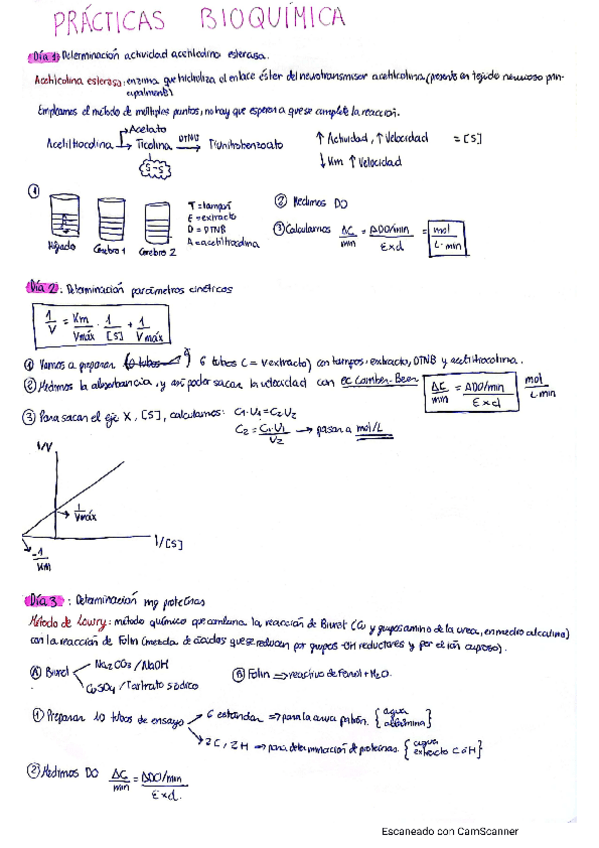 PRÁCTICAS BIOQUÍMICA
Día 1: Determinación actividad acetilcolina esterasa.
Acetilcolina esterasa: enzima que hidroliza el enlace éster del neurotransmisor acetilcolina (presente en tejido nervioso prin-
cipalmente)
Empleamos el método de múltiples puntos, no hay que esperar a que se complete la reacción.
Acetiltiocolina → Acetato
Tiocolina DTNB → Tionitrobenzoato
S-S
↑ Actividad, ↑ Velocidad = [S]
↓ Km ↑ Velocidad
①
Hígado Cerebro 1 Cerebro 2
T = tampón
E = extracto
D = DTNB
A = acetiltiocolina
② Medimos DO
③ Calculamos ΔC/min = ΔDO/min / Ɛxd = mol / L·min
Día 2: Determinación parámetros cinéticos
1/V = Km/Vmáx · 1/[S] + 1/Vmáx
① Vamos a preparar 6 tubos (= V extracto) con tampón, extracto, DTNB y acetiltiocolina.
② Medimos la absorbancia, y así poder sacar la velocidad con ec Lamber-Beer ΔC/min = ΔDO/min / Ɛxd mol / L·min
③ Para sacar el eje X, [S], calculamos: C1·V1 = C2·V2
C2 = C1·V1 / V2 → pasar a mol/L
1/V
1/Vmáx
1/[S]
-1/Km
Día 3: Determinación mg proteínas
Método de Lowry: método químico que combina la reacción de Biuret (Cu y grupos amino de la urea, en medio alcalino)
con la reacción de Folin (mezcla de ácidos que se reducen por grupos -OH reductores y por el ión cuproso).
Ⓐ Biuret Na2CO3 / NaOH
CuSO4 / Tartrato sódico
Ⓑ Folin ⇒ reactivo de fenol + H2O.
① Preparar 10 tubos de ensayo → 6 estándar ⇒ para la curva patrón. {agua albúmina}
→ 2C, 2H ⇒ para determinación de proteínas. {agua extracto C ó H}
② Medimos DO ΔC/min = ΔDO/min / Ɛxd.
Escaneado con CamScanner